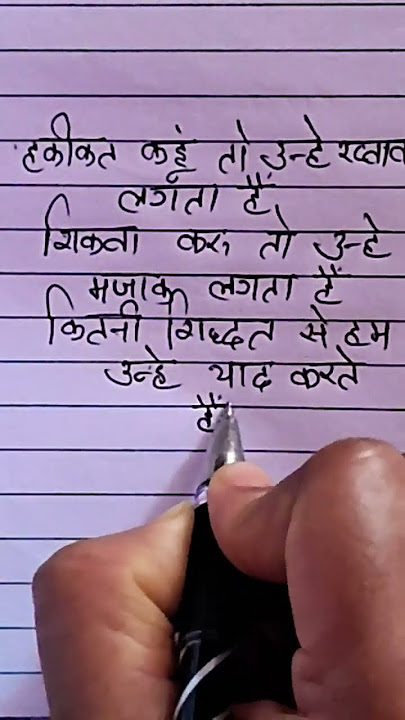 हकीकत कहूं तो उन्हे ख्वाब
लगता हैं
शिकवा करू तो उन्हे
मजाक लगता हैं
कितनी शिद्धत से हम
उन्हे याद करते
हैं